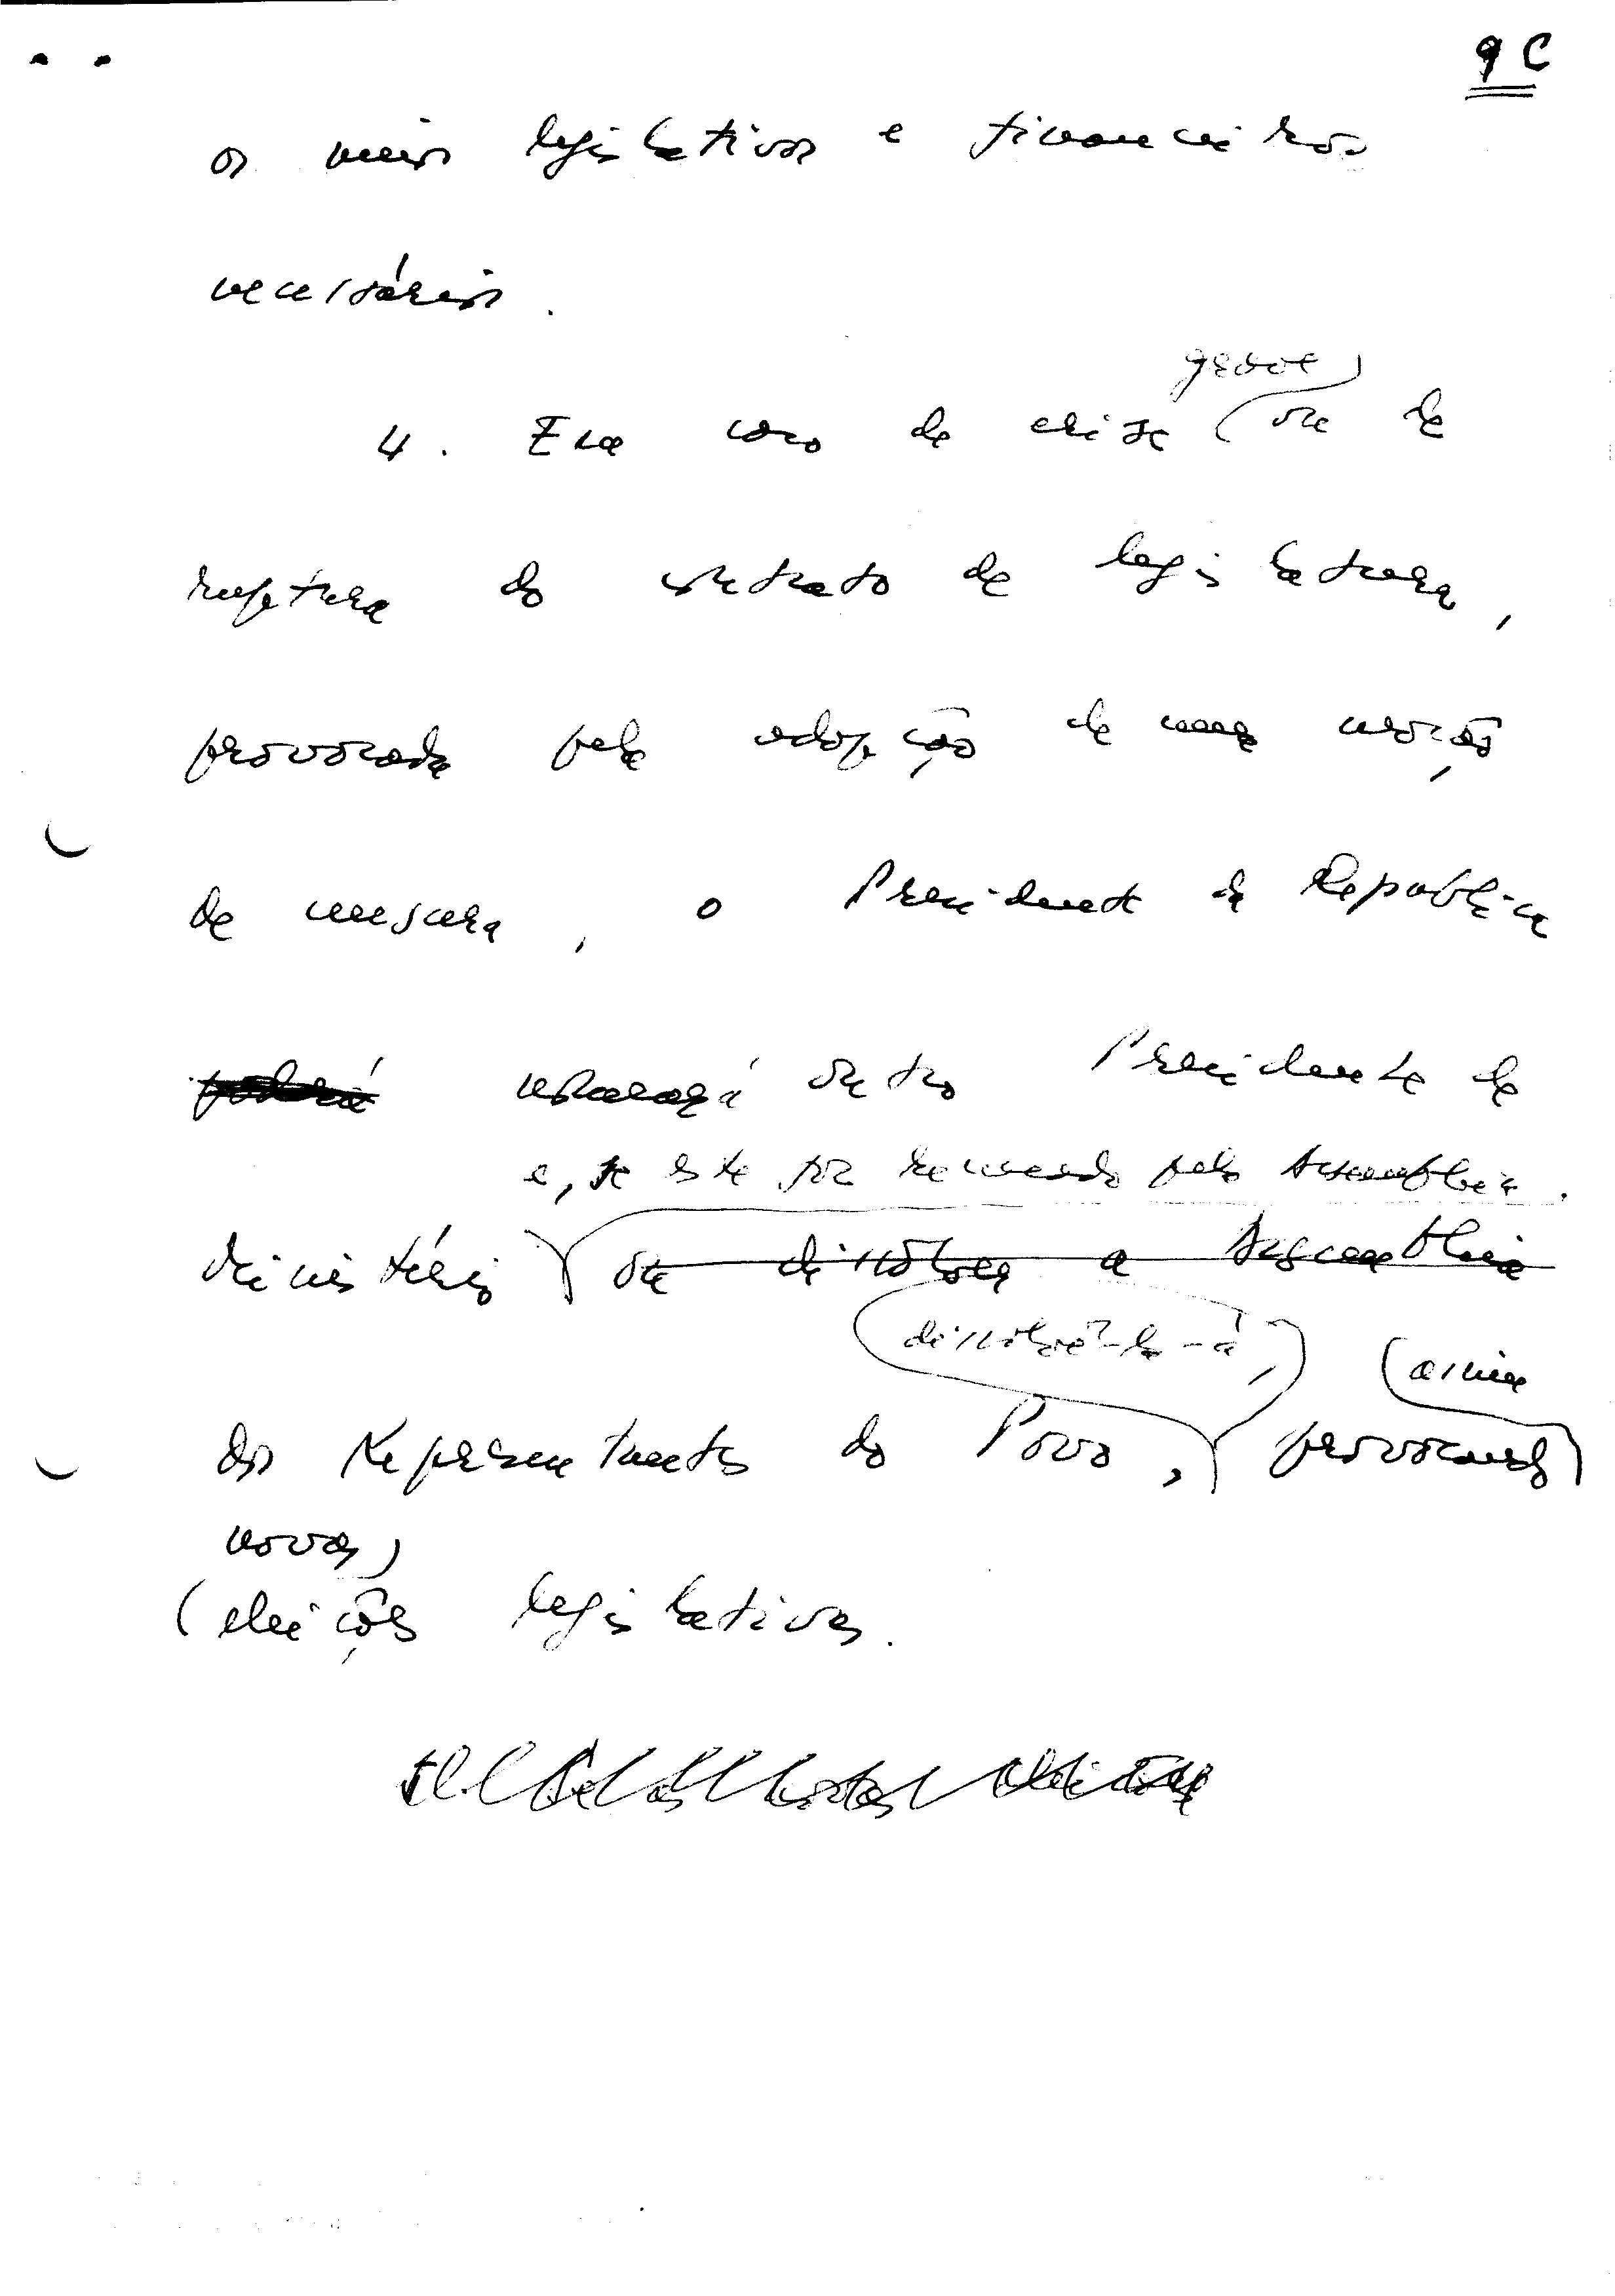 9 C
os meios legislativos e financeiros
necessários.
grave
4. Em caso de crise ou de
ruptura do contrato de legislatura,
provocada pela adopção de uma moção
de censura, o Presidente da República
poderá nomeará outro Presidente de
e, se este for recusado pela Assembleia
Ministério ou dissolver a Assembleia
dissolvê-la-á, assim
dos Representantes do Povo, provocando
novas
eleições legislativas.